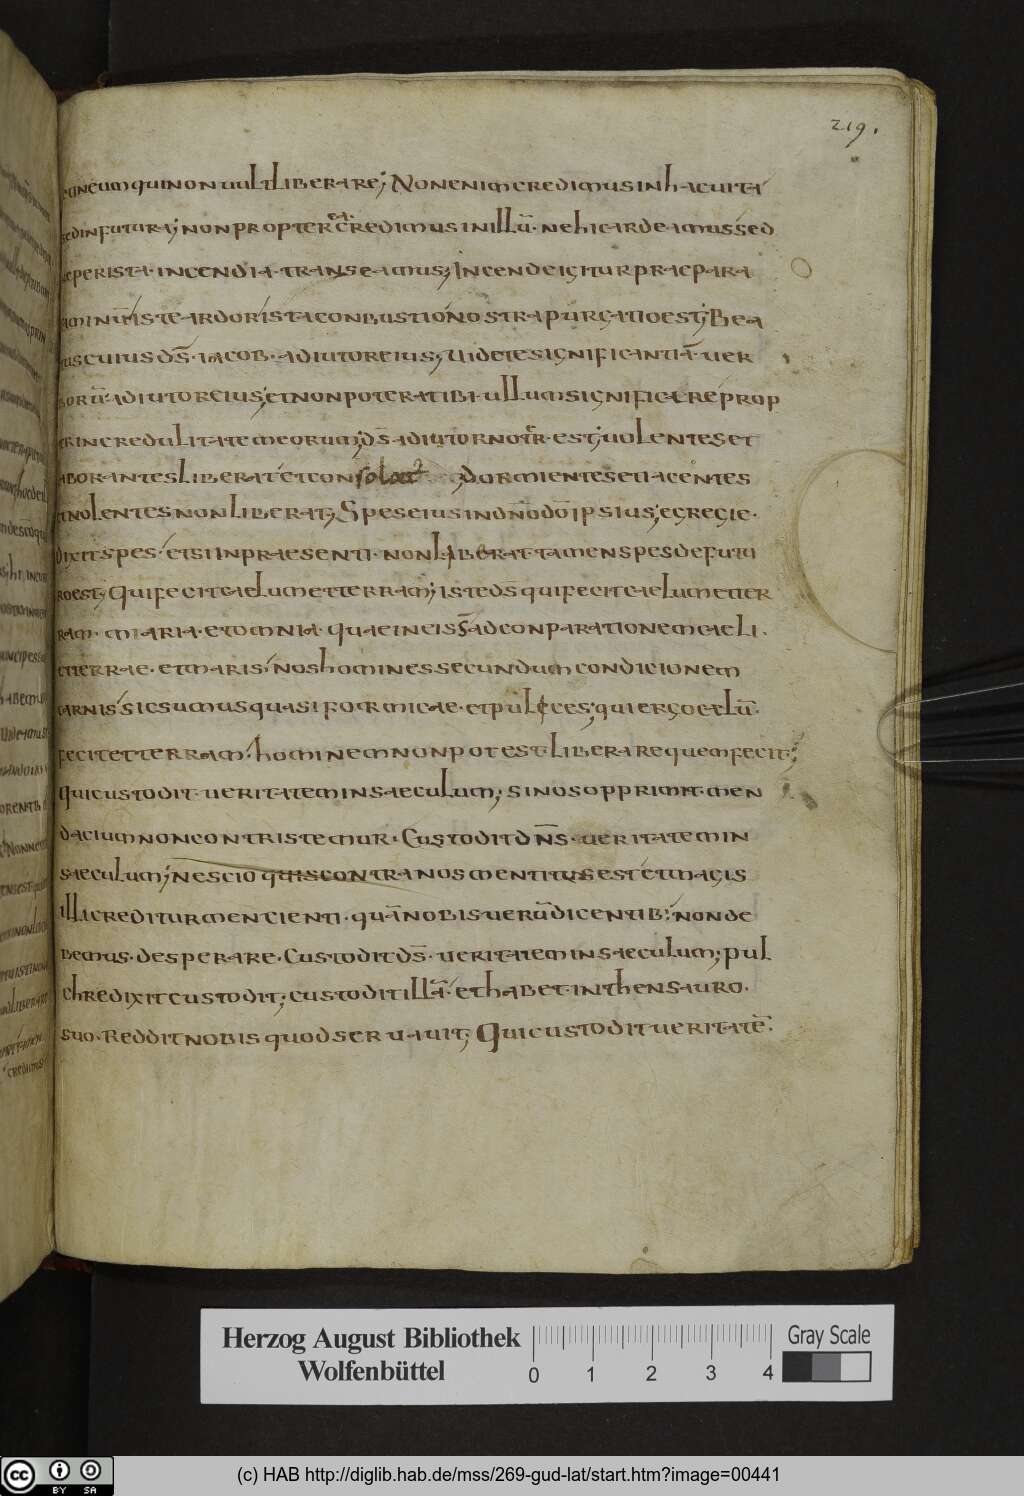 219.
eum qui non uult liberare; Non enim credimus in hac uita
sed in futura; non propterea credimus in illū. ne hic ardeamus sed
perista incendia transeamus; Incendeigitur praepara
iste ardor ista conbustio nostra purgatio est; Bea
tus cuius ds̄ iacob. adiutor eius; Uidete significantiā. uer
borū adiutor eius; et non poterat ibi ullum significare prop
ter incredulitatem eorum; ds̄ adiutor nostr̄. est; uolentes et
laborantes liberat et con solat Dormientes et iacentes
et nolentes non liberat; Spes eius in dn̄o dō ipsius; egregie.
dixit spes. etsi in praesenti. non liberat tamen spes de futu
ro est; Qui fecit caelum et terram; iste ds̄ qui fecit caelum et ter
ram. maria. et omnia. quae in eis s̄ ad conparationem caeli.
et terrae. et maris. nos homines secundum condicionem
carnis sic sumus quasi formicae. et pulices; qui ergo caelū.
fecit et terram. hominem non potest. liberare quem fecit;
Qui custodit. ueritatem in saeculum; si nos opprimit. men
dacium non contristemur. Custodit dn̄s. ueritatem in
saeculum; nescio quis contra nos mentitus est et magis
illi creditur mentienti. quā nobis uerū dicentib; non de
bemus. desperare. Custodit ds̄. ueritatem in saeculum; pul
chre dixit custodit; custodit illā. et habet. in thensauro.
suo. Reddit nobis quod seruauit; Qui custodit ueritatē.
Herzog August Bibliothek
Wolfenbüttel
0 1 2 3 4
Gray Scale
cc BY SA
(c) HAB http://diglib.hab.de/mss/269-gud-lat/start.htm?image=00441